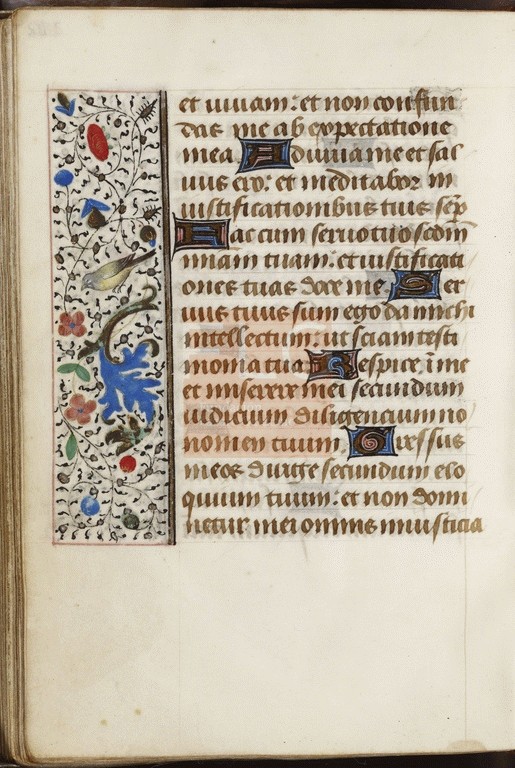 et uiuam: et non confun
das me ab expectatione
mea. Adiuua me et sal
uus ero: et meditabor in
iustificationibus tuis semp
Fac cum seruo tuo sedm̄
niam tuam: et iustificati
ones tuas doce me. Ser
uus tuus sum ego da michi
intellectum: ut sciam testi
monia tua Respice ī me
et miserere mei secundum
iudicium diligencium no
nomen tuum Gressus
meos dirige secundum elo
quium tuum: et non domi
netur mei omnis iniusticia